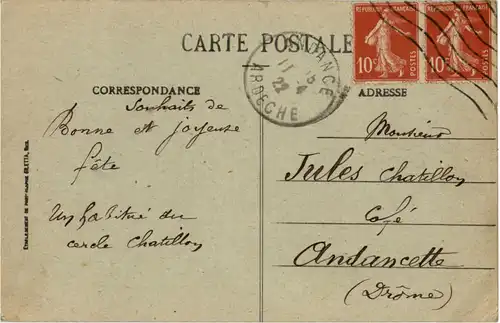 CARTE POSTALE
REPUBLIQUE FRANÇAISE
REPUBLIQUE FRANÇAISE
10c
POSTES
10c
POSTES
ARDECHE
CORRESPONDANCE
ADRESSE
Souhaits de
Bonne et joyeuse
fête
Un habitué du
cercle Chatillon
Monsieur
Jules Chatillon
Café
Andancette
(Drôme)